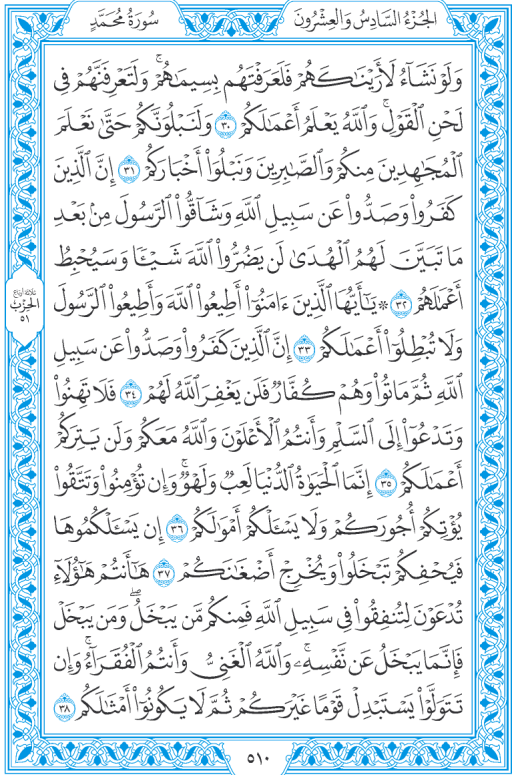 الجُزْءُ السَّادِسُ وَالعِشْرُونَ
سُورَةُ مُحَمَّدٍ
وَلَوْ نَشَآءُ لَأَرَيْنَٰكَهُمْ فَلَعَرَفْتَهُم بِسِيمَٰهُمْۚ وَلَتَعْرِفَنَّهُمْ فِى
لَحْنِ ٱلْقَوْلِۚ وَٱللَّهُ يَعْلَمُ أَعْمَٰلَكُمْ ٣٠ وَلَنَبْلُوَنَّكُمْ حَتَّىٰ نَعْلَمَ
ٱلْمُجَٰهِدِينَ مِنكُمْ وَٱلصَّٰبِرِينَ وَنَبْلُوَا۟ أَخْبَارَكُمْ ٣١ إِنَّ ٱلَّذِينَ
كَفَرُوا۟ وَصَدُّوا۟ عَن سَبِيلِ ٱللَّهِ وَشَآقُّوا۟ ٱلرَّسُولَ مِنۢ بَعْدِ
مَا تَبَيَّنَ لَهُمُ ٱلْهُدَىٰ لَن يَضُرُّوا۟ ٱللَّهَ شَيْـًٔا وَسَيُحْبِطُ
أَعْمَٰلَهُمْ ٣٢ ۞ يَٰٓأَيُّهَا ٱلَّذِينَ ءَامَنُوٓا۟ أَطِيعُوا۟ ٱللَّهَ وَأَطِيعُوا۟ ٱلرَّسُولَ
وَلَا تُبْطِلُوٓا۟ أَعْمَٰلَكُمْ ٣٣ إِنَّ ٱلَّذِينَ كَفَرُوا۟ وَصَدُّوا۟ عَن سَبِيلِ
ٱللَّهِ ثُمَّ مَاتُوا۟ وَهُمْ كُفَّارٌ فَلَن يَغْفِرَ ٱللَّهُ لَهُمْ ٣٤ فَلَا تَهِنُوا۟
وَتَدْعُوٓا۟ إِلَى ٱلسَّلْمِ وَأَنتُمُ ٱلْأَعْلَوْنَ وَٱللَّهُ مَعَكُمْ وَلَن يَتِرَكُمْ
أَعْمَٰلَكُمْ ٣٥ إِنَّمَا ٱلْحَيَوٰةُ ٱلدُّنْيَا لَعِبٌ وَلَهْوٌۚ وَإِن تُؤْمِنُوا۟ وَتَتَّقُوا۟
يُؤْتِكُمْ أُجُورَكُمْ وَلَا يَسْـَٔلْكُمْ أَمْوَٰلَكُمْ ٣٦ إِن يَسْـَٔلْكُمُوهَا
فَيُحْفِكُمْ تَبْخَلُوا۟ وَيُخْرِجْ أَضْغَٰنَكُمْ ٣٧ هَٰٓأَنتُمْ هَٰٓؤُلَآءِ
تُدْعَوْنَ لِتُنفِقُوا۟ فِى سَبِيلِ ٱللَّهِ فَمِنكُم مَّن يَبْخَلُۖ وَمَن يَبْخَلْ
فَإِنَّمَا يَبْخَلُ عَن نَّفْسِهِۦۚ وَٱللَّهُ ٱلْغَنِىُّ وَأَنتُمُ ٱلْفُقَرَآءُۚ وَإِن
تَتَوَلَّوْا۟ يَسْتَبْدِلْ قَوْمًا غَيْرَكُمْ ثُمَّ لَا يَكُونُوٓا۟ أَمْثَٰلَكُم ٣٨
ثلاثة أرباع
الحِزْبُ
٥١
٥١٠